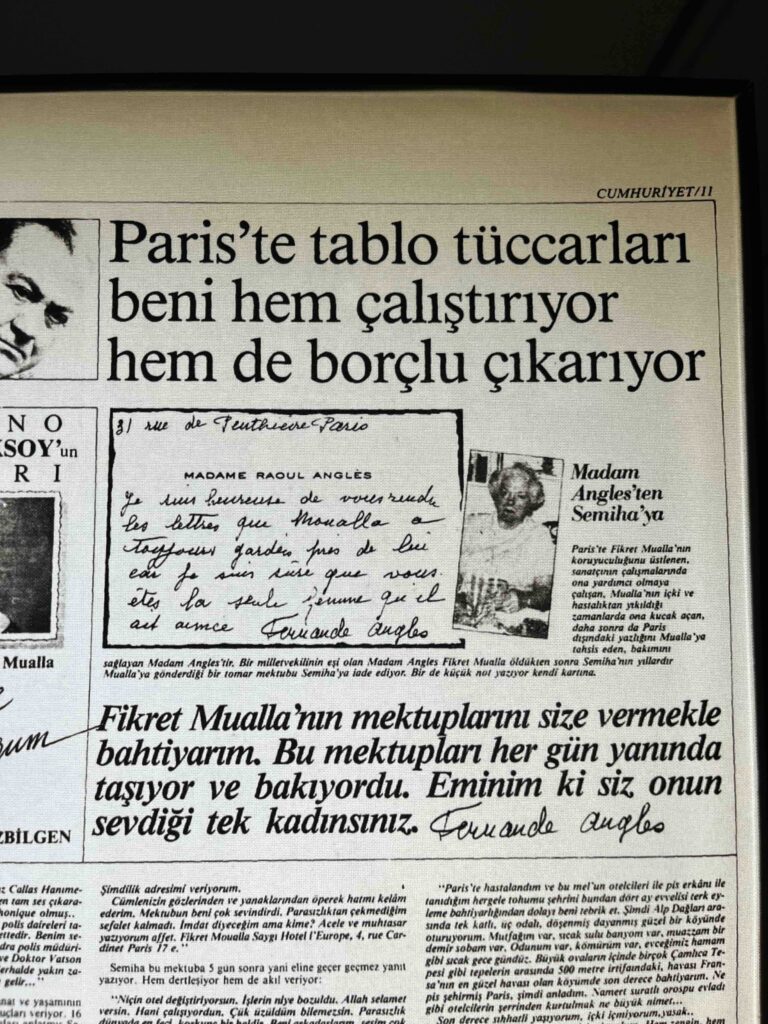 CUMHURİYET/11
Paris'te tablo tüccarları
beni hem çalıştırıyor
hem de borçlu çıkarıyor
N O
KSOY'un
R I
31 rue de Penthièvre Paris
MADAME RAOUL ANGLÈS
Je suis heureuse de vous rendre
les lettres que Moualla a
toujours gardées près de lui
car je suis sûre que vous
êtes la seule femme qu'il
ait aimée Fernande Anglès
Madam
Angles'ten
Semiha'ya
Paris'te Fikret Mualla'nın
koruyuculuğunu üstlenen,
sanatçının çalışmalarında
ona yardımcı olmaya
çalışan, Mualla'nın içki ve
hastalıktan yıkıldığı
zamanlarda ona kucak açan,
daha sonra da Paris
dışındaki yazlığını Mualla'ya
tahsis eden, bakımını
sağlayan Madam Angles'tir. Bir milletvekilinin eşi olan Madam Angles Fikret Mualla öldükten sonra Semiha'nın yıllardır
Mualla'ya gönderdiği bir tomar mektubu Semiha'ya iade ediyor. Bir de küçük not yazıyor kendi kartına.
Mualla
Fikret Mualla'nın mektuplarını size vermekle
bahtiyarım. Bu mektupları her gün yanında
taşıyor ve bakıyordu. Eminim ki siz onun
sevdiği tek kadınsınız. Fernande Angles
ZBİLGEN
z Callas Hanıme-
en tam ses çıkara-
honique olmuş..
polis daireleri ta-
ettedir. Benim se-
dra polis müdüri-
ve Doktor Vatson
erhalde yakın za-
gelir..."
nat ve yaşamının
uçları veriyor. 16
Şimdilik adresimi veriyorum.
Cümlenizin gözlerinden ve yanaklarından öperek hatmı kelâm
ederim. Mektubun beni çok sevindirdi. Parasızlıktan çekmediğim
sefalet kalmadı. İmdat diyeceğim ama kime? Acele ve muhtasar
yazıyorum affet. Fikret Moualla Saygı Hotel l'Europe, 4, rue Car-
dinet Paris 17 e."
Semiha bu mektuba 5 gün sonra yani eline geçer geçmez yanıt
yazıyor. Hem dertleşiyor hem de akıl veriyor:
"Niçin otel değiştiriyorsun. İşlerin niye bozuldu. Allah selamet
versin. Hani çalışıyordun. Çük üzüldüm bilemezsin. Parasızlık
"Paris'te hastalandım ve bu mel'un otelcileri ile pis erkânı ile
tanıdığım hergele tohumu şehrini bundan dört ay evvelisi terk ey-
leme bahtiyarlığından dolayı beni tebrik et. Şimdi Alp Dağları ara-
sında tek katlı, üç odalı, döşenmiş dayanmış güzel bir köyünde
oturuyorum. Mutfağım var, sıcak sulu banyom var, muazzam bir
demir sobam var. Odunum var, kömürüm var, evceğimiz hamam
gibi sıcak gece gündüz. Büyük ovaların içinde birçok Çamlıca Te-
pesi gibi tepelerin arasında 500 metre irtifaındaki, havası Fran-
sa'nın en güzel havası olan köyümde son derece bahtiyarım. Ne
pis şehirmiş Paris, şimdi anladım. Namert suratlı orospu evladı
gibi otelcilerin şerrinden kurtulmak ne büyük nimet...
Son derece sıhhatli yaşıyorum, içki içmiyorum, yasak..